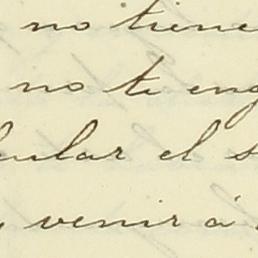 no tiene
no te eng
cular el s
venir á